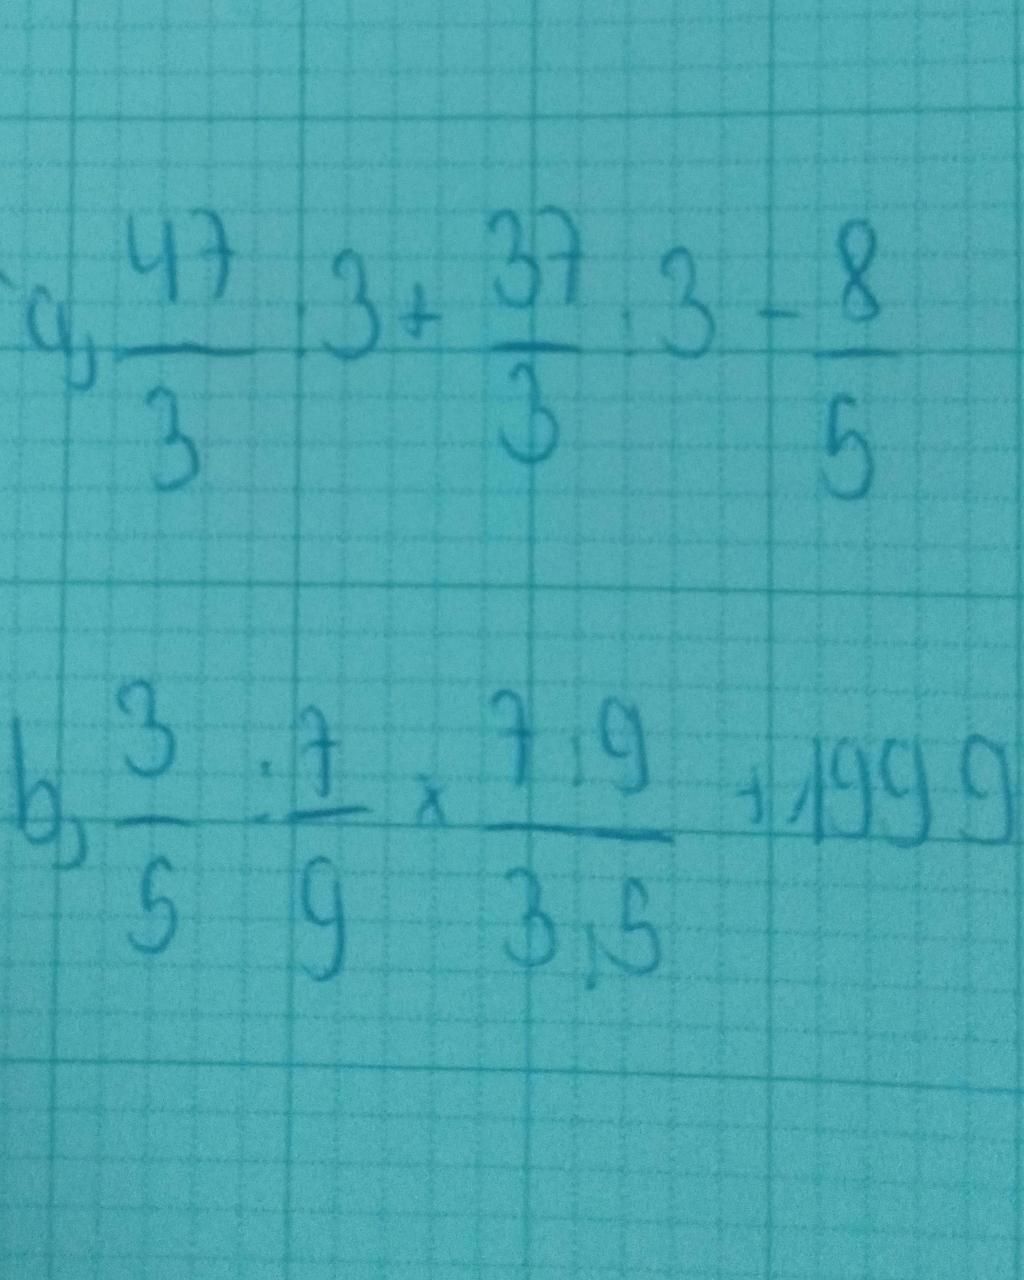 a, 47/3 . 3 + 37/3 . 3 - 8/5
b, 3/5 : 7/9 x 7.9/3.5 + 1999